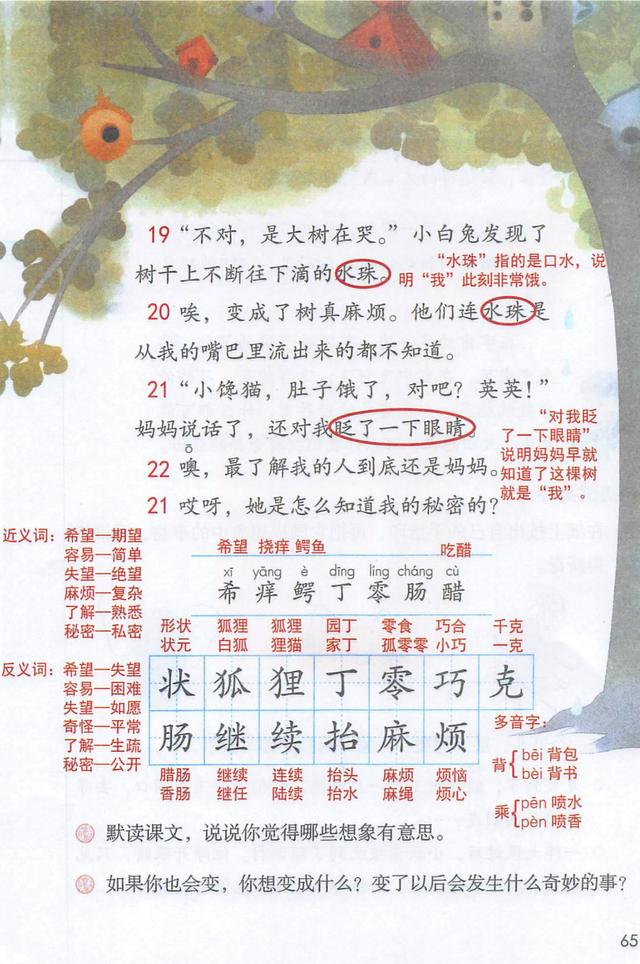 19 “不对，是大树在哭。”小白兔发现了
树干上不断往下滴的水珠。
“水珠”指的是口水，说
明“我”此刻非常饿。
20 唉，变成了树真麻烦。他们连水珠是
从我的嘴巴里流出来的都不知道。
21 “小馋猫，肚子饿了，对吧？英英！”
妈妈说话了，还对我眨了一下眼睛。
“对我眨
了一下眼睛”
说明妈妈早就
知道了这棵树
就是“我”。
ō
22 噢，最了解我的人到底还是妈妈。
21 哎呀，她是怎么知道我的秘密的？
近义词：希望—期望
容易—简单
失望—绝望
麻烦—复杂
了解—熟悉
秘密—私密
希望 挠痒 鳄鱼 吃醋
xī yǎng è dīng líng cháng cù
希 痒 鳄 丁 零 肠 醋
反义词：希望—失望
容易—困难
失望—如愿
奇怪—平常
了解—生疏
秘密—公开
形状 狐狸 狐狸 园丁 零食 巧合 千克
状元 白狐 狸猫 家丁 孤零零 小巧 一克
状 狐 狸 丁 零 巧 克
肠 继 续 抬 麻 烦
腊肠 继续 连续 抬头 麻烦 烦恼
香肠 继任 陆续 抬水 麻绳 烦心
多音字：
背 bēi 背包
bèi 背书
乘 pēn 喷水
pèn 喷香
默读课文，说说你觉得哪些想象有意思。
如果你也会变，你想变成什么？变了以后会发生什么奇妙的事？
65